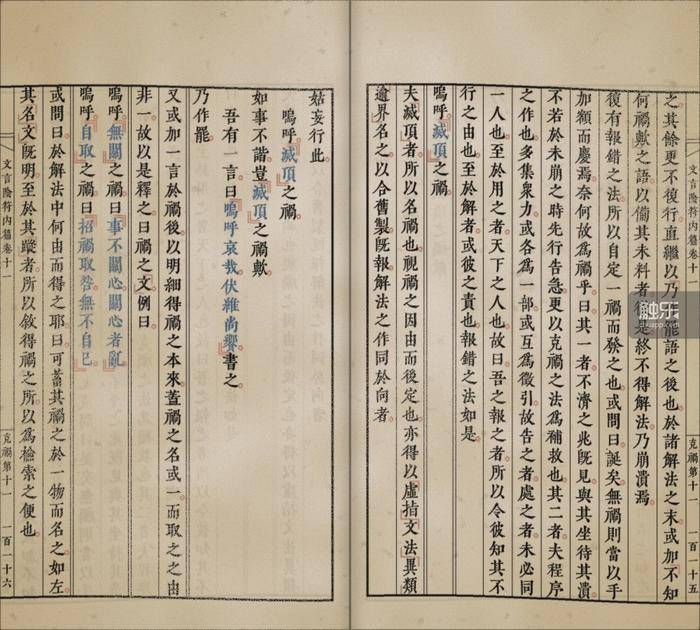 文言陰符內篇卷十一 克禍第十一 一百一十五
之。其餘更不復行。直繼以乃作罷語之後也。於諸解法之末。或加不知
何禍歟之語。以備其未料者。是終不得解法。乃崩潰焉。
復有報錯之法。所以自定一禍而發之也。或問曰。誕矣。無禍則當以手
加額而慶焉。奈何故為禍乎。曰。其一者。不濟之兆既見。與其坐待其潰。
不若於未崩之時。先行告急。更以克禍之法為補救也。其二者。夫程序
之作也。多集衆力。或各為一部。或互為徵引。故告之者處之者。未必同
一人也。至於用之者。天下之人也。故曰。吾之報之者。所以令彼知其不
行之由也。至於解者。或彼之責也。報錯之法如是。
嗚呼。『滅頂』之禍。
夫滅頂者。所以名禍也。視禍之因由而後定也。亦得以虛指文法異類
逾界名之。以合舊製。既報。解法之作。同於向者。
姑妄行此。
嗚呼。『滅頂』之禍。
如事不諧。豈『滅頂』之禍歟。
吾有一言。曰『嗚呼哀哉。伏維尚饗』書之。
乃作罷。
又或加一言於禍後。以明細得禍之本來。蓋禍之名或一。而取之之由
非一。故以是釋之。曰禍之文。例曰。
嗚呼。『無關』之禍。曰『事不關心。關心者亂』
嗚呼。『自取』之禍。曰『招禍取咎。無不自己』
或問曰。於解法中何由而得之耶。曰。可蓄其禍之於一物而名之。如左
其名文既明。至於其蹤者。所以敘得禍之所。以為檢索之便也。
文言陰符內篇卷十一 克禍第十一 一百一十六
触乐
chuapp.com